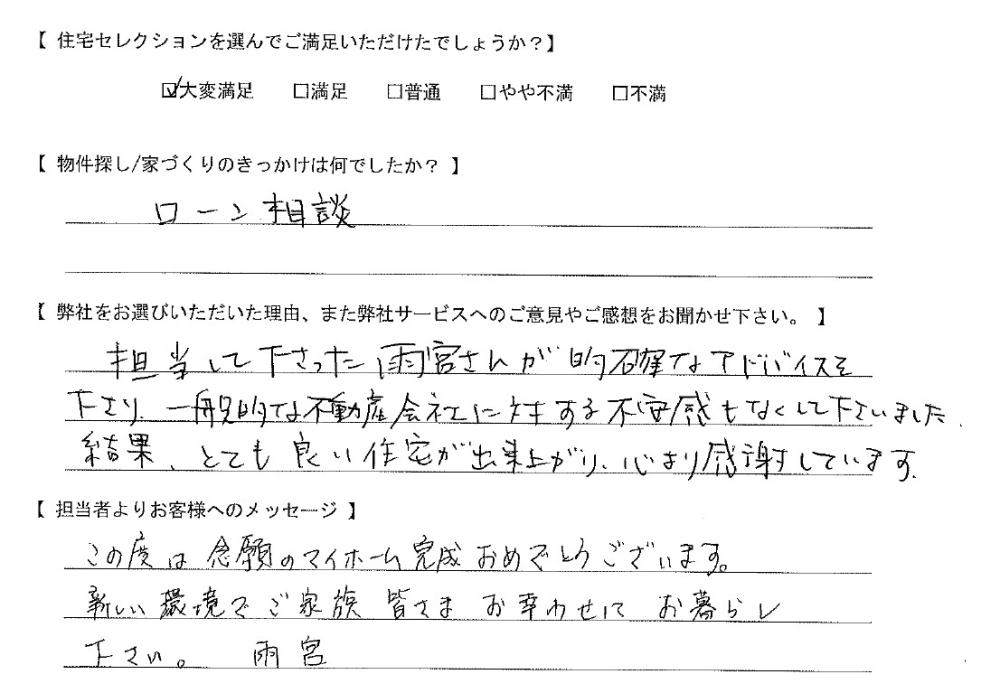 【 住宅セレクションを選んでご満足いただけたでしょうか？】
☑大変満足 □満足 □普通 □やや不満 □不満
【 物件探し/家づくりのきっかけは何でしたか？ 】
ローン相談
【 弊社をお選びいただいた理由、また弊社サービスへのご意見やご感想をお聞かせ下さい。 】
担当して下さった雨宮さんが的確なアドバイスを
下さり、一般的な不動産会社に対する不安感もなくして下さいました。
結果、とても良い住宅が出来上がり、心より感謝しています。
【 担当者よりお客様へのメッセージ 】
この度は念願のマイホーム完成おめでとうございます。
新しい環境でご家族皆さまお幸わせにお暮らし
下さい。 雨宮